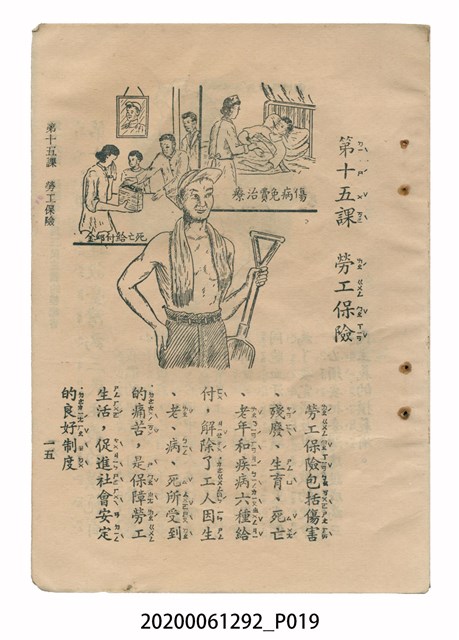 第十五課　勞工保險
傷病免費治療
死亡給付卹金
勞工保險包括傷害
、殘廢、生育、死亡
、老年和疾病六種給
付，解除了工人因生
、老、病、死所受到
的痛苦，是保障勞工
生活，促進社會安定
的良好制度
第十五課　勞工保險
一五
20200061292_P019